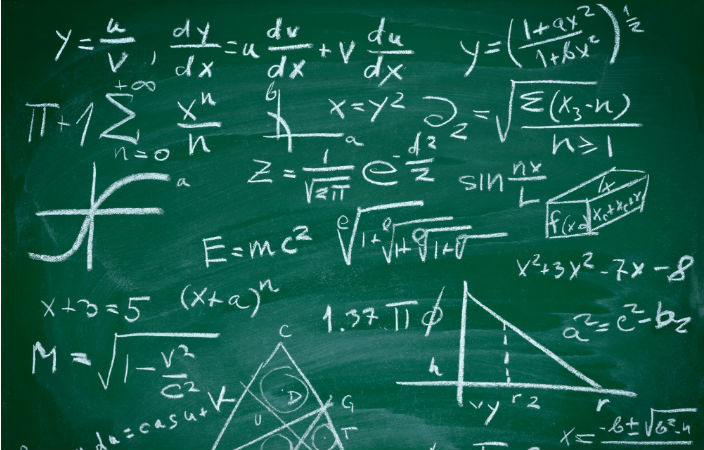 y = u/v , dy/dx = u dv/dx + v du/dx
y = ((1+ax²)/(1+bx²))^½
π+1 +∞ Σ n=0 xⁿ/n
b a
x=y²
∂₂ = √(Σ(x₃-n)/n≥1)
a
z = 1/√2π e^-d²/2
sin nx/L
E=mc²
e√1+ √1+ √1+
x²+3x²-7x-8
x+3=5 (x+a)ⁿ
1.37 π ϕ
a²=c²-b₂
M = √(1-v²/c²)
C
D
U
G
T
h
vy r2 r
du = cos u + K
x = -b±√b²-4